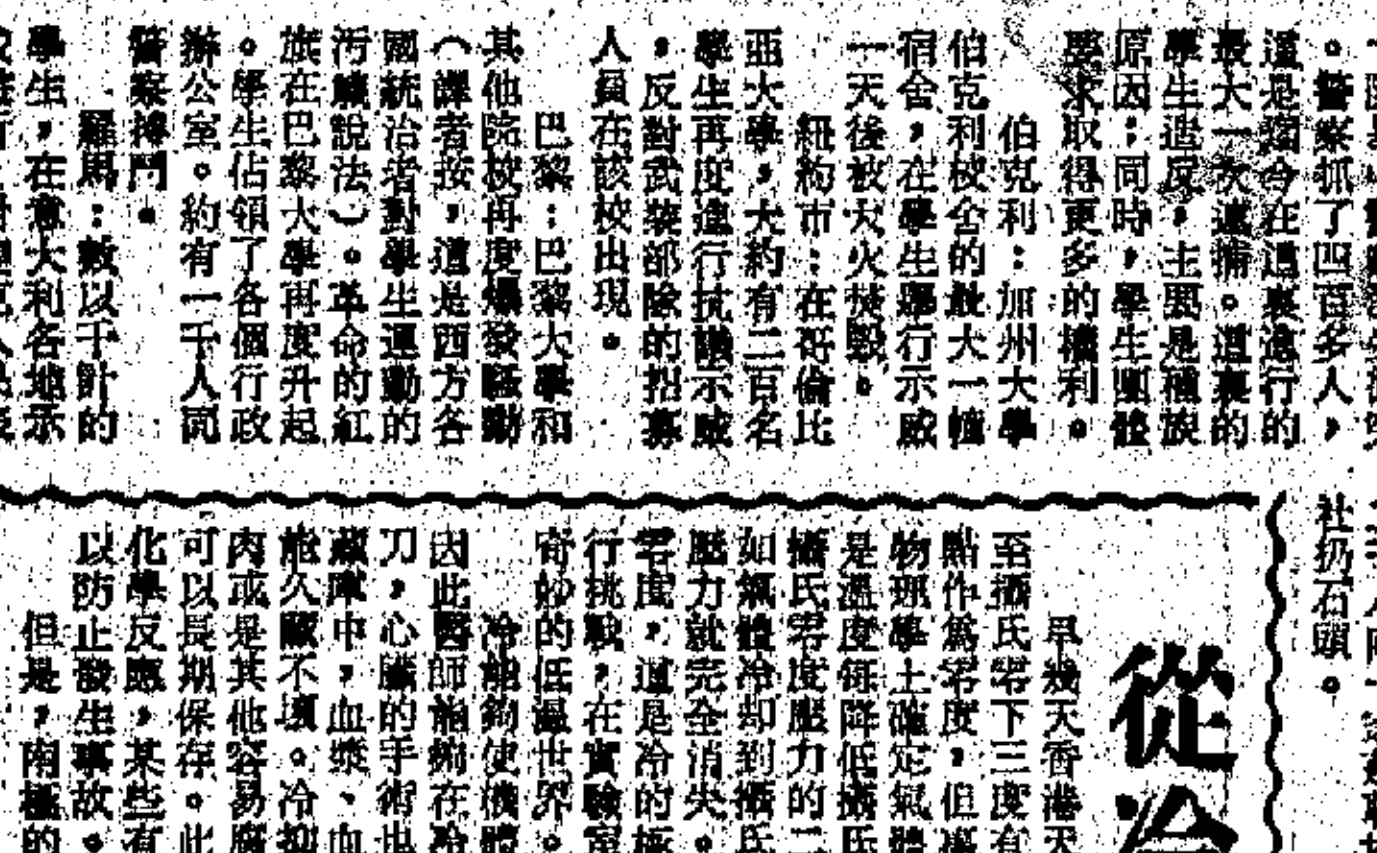 。警察抓了四百多人，
這是迄今在這裏進行的
最大一次逮捕。這裏的
學生造反，主要是種族
原因；同時，學生團體
要求取得更多的權利。
伯克利：加州大學
伯克利校舍的最大一幢
宿舍，在學生舉行示威
一天後被大火焚毀。
紐約市：在哥倫比
亚大學，大約有二百名
學生再度進行抗議示威
，反對武裝部隊的招募
人員在該校出現。
巴黎：巴黎大學和
其他院校再度爆發騷動
（譯者按，這是西方各
國統治者對學生運動的
污衊說法）。革命的紅
旗在巴黎大學再度升起
。學生佔領了各個行政
辦公室。約有一千人同
警察搏鬥。
羅馬：數以千計的
學生，在意大利各地示
社扔石頭。
從冷
早幾天香港天
至攝氏零下三度有
點作爲零度，但
物理學上確定氣體
是溫度每降低攝氏
攝氏零度壓力的二
如氣體冷却到攝氏
壓力就完全消失。
零度，這是冷的極
行挑戰，在實驗室
奇妙的低溫世界。
冷能夠使機體
因此醫師能夠在冷
刀，心臟的手術也
藏庫中，血漿、血
能久藏不壞。冷抑
肉或是其他容易腐
可以長期保存。此
化學反應，某些有
以防止發生事故。
但是，南極的